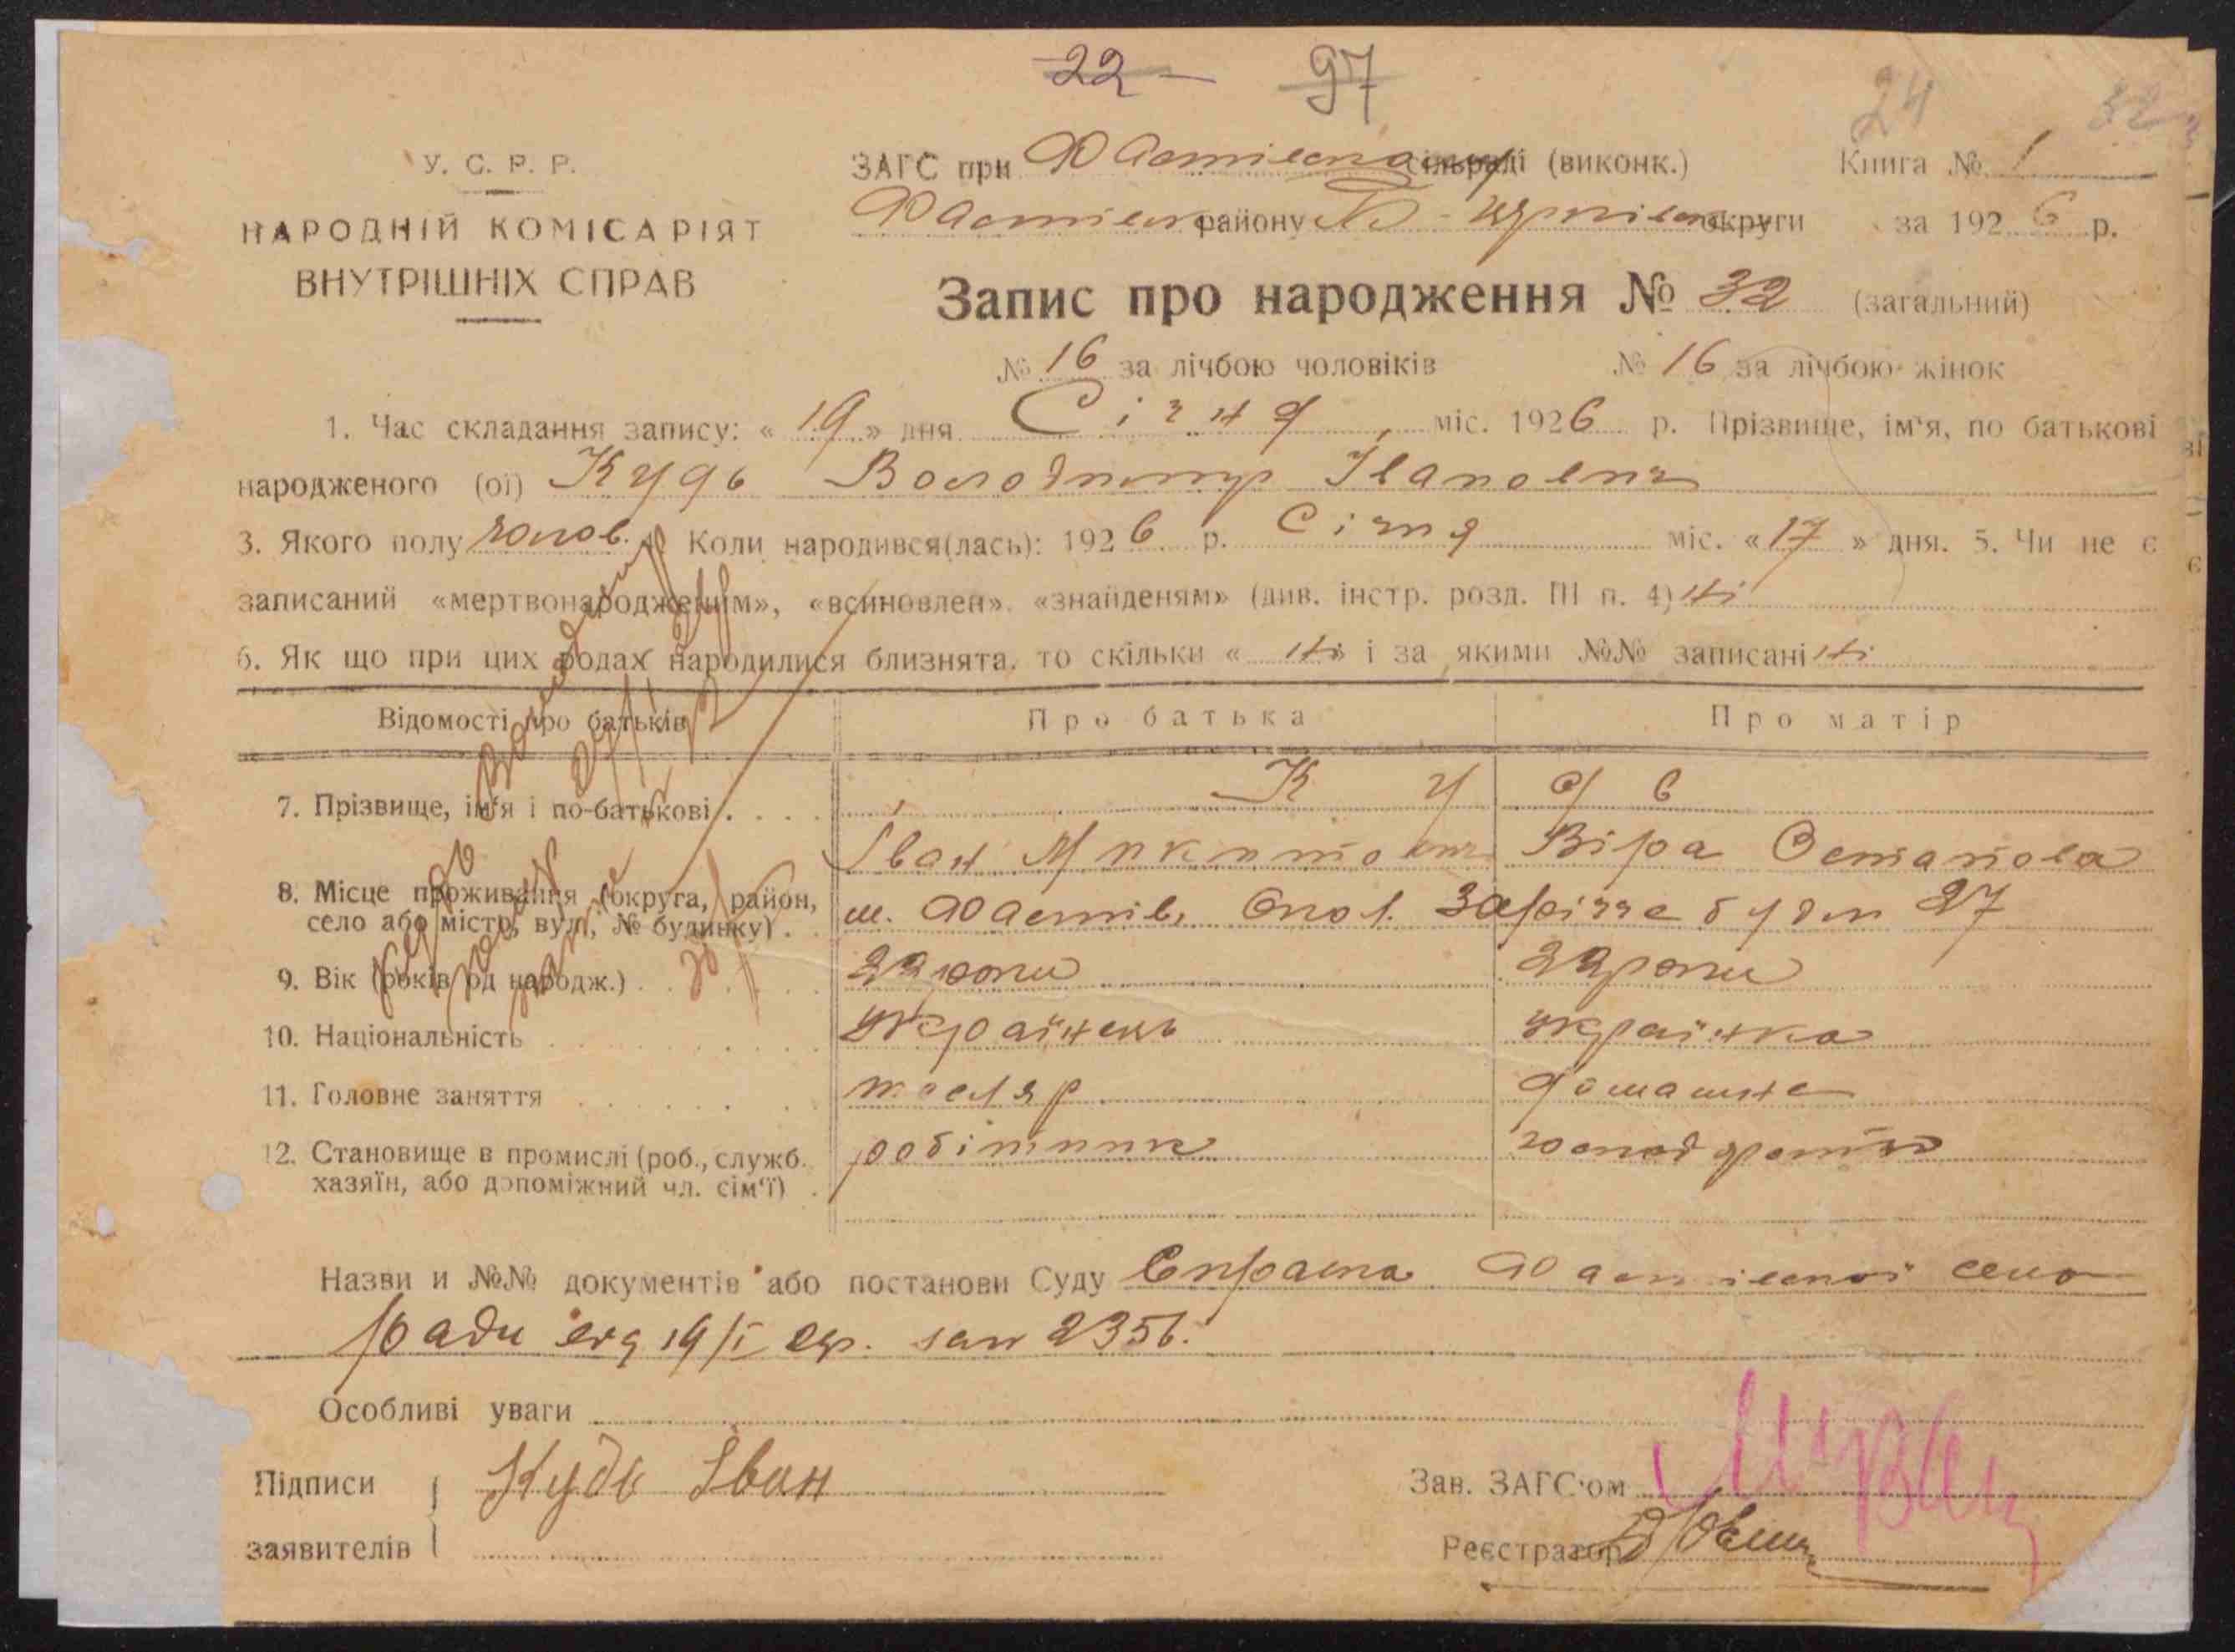 22 97
24 32
У. С. Р. Р.
НАРОДНІЙ КОМІСАРІЯТ
ВНУТРІШНІХ СПРАВ
ЗАГС при Фастівському сільраді (виконк.) Книга № 1
Фастівськ району Б-Церківськ округи за 1926 р.
Запис про народження № 32 (загальний)
№ 16 за лічбою чоловіків № 16 за лічбою жінок
1. Час складання запису: «19» дня Січня міс. 1926 р. Прізвище, ім'я, по батькові
народженого (ої) Кудь Володимир Іванович
3. Якого полу чолов. 4. Коли народився(лась): 1926 р. Січня міс. «17» дня. 5. Чи не є
записаний «мертвонародженім», «всиновлен», «знайденям» (див. інстр. розд. III п. 4) ні
6. Як що при цих родах народилися близнята, то скільки « ні » і за якими №№ записані ні
Відомості про батьків Про батька Про матір
7. Прізвище, ім'я і по-батькові К у д ь
Іван Микитович Віра Остапова
8. Місце проживання (округа, район,
село або місто, вул., № будинку) м. Фастів, Заріччя будин 27
9. Вік (років од народж.) 22 роки 22 роки
10. Національність українець українка
11. Головне заняття тесляр домашнє
12. Становище в промислі (роб., служб.
хазяїн, або допоміжний чл. сім'ї) робітник
Назви и №№ документів або постанови Суду Фастівської
Ради від 19/I 2356.
Особливі уваги
Підписи
заявителів
Кудь Іван
Зав. ЗАГС'ом
Реєстратор